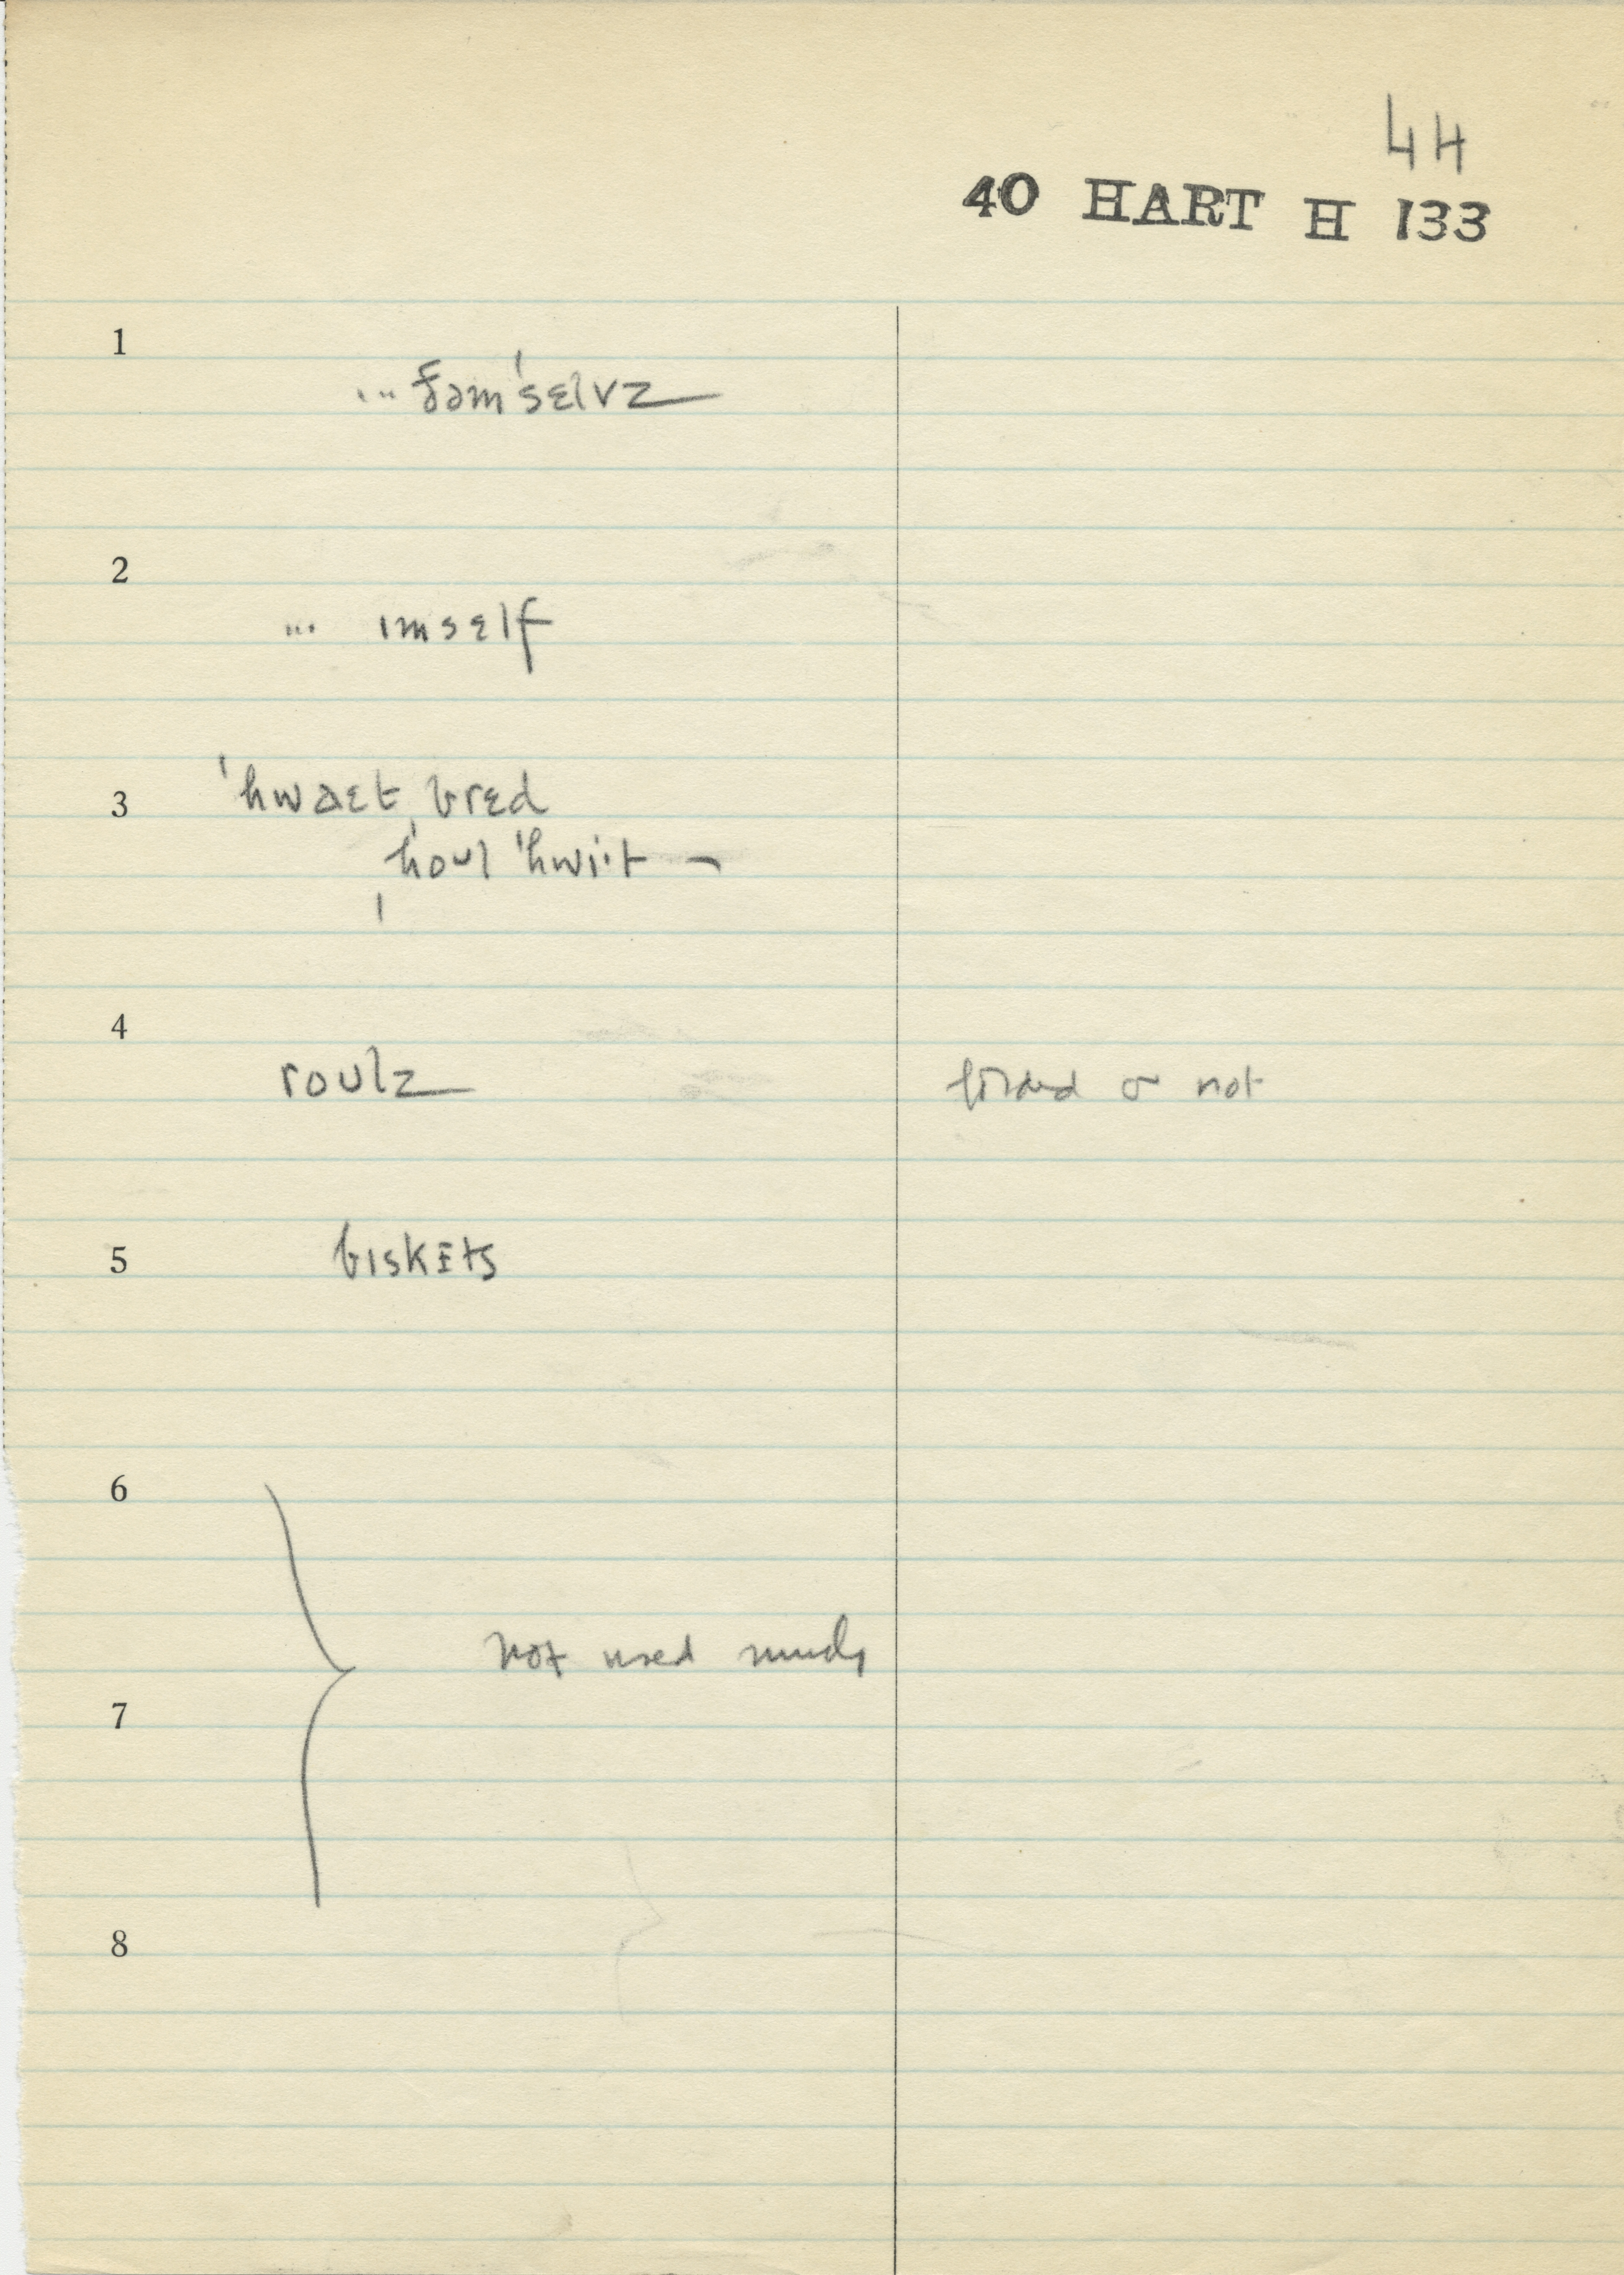 44
40 HART H 133
1
... ðəm'sɛlvz
2
... ɪmsɛlf
3 'hwaɛt ˌbrɛd
ˌhoul 'hwi·t —
4
roulz folded or not
5 bɪskɪts
6
not used much
7
8